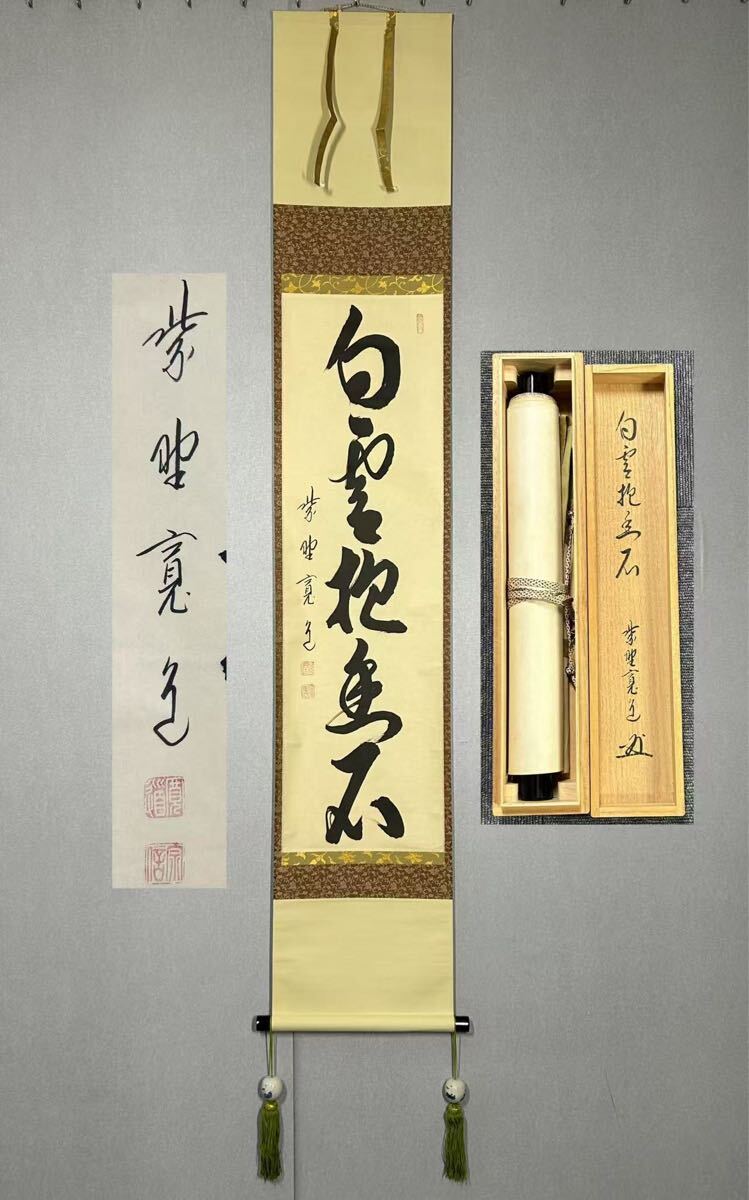 白雲抱幽石
紫野寛道
紫野寛道
寛道
宗信
白雲抱幽石
紫野寛道